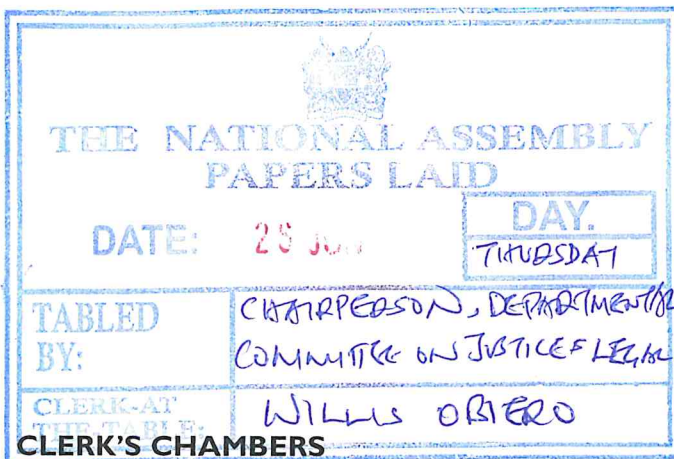 THE NATIONAL ASSEMBLY
PAPERS LAID
DATE: 25
DAY.
THURSDAY
TABLED BY:
CHAIRPERSON, DEPARTMENTAL
COMMITTEE ON JUSTICE & LEGAL
CLERK-AT
THE-TABLE:
WILLIS OBIERO
CLERK'S CHAMBERS